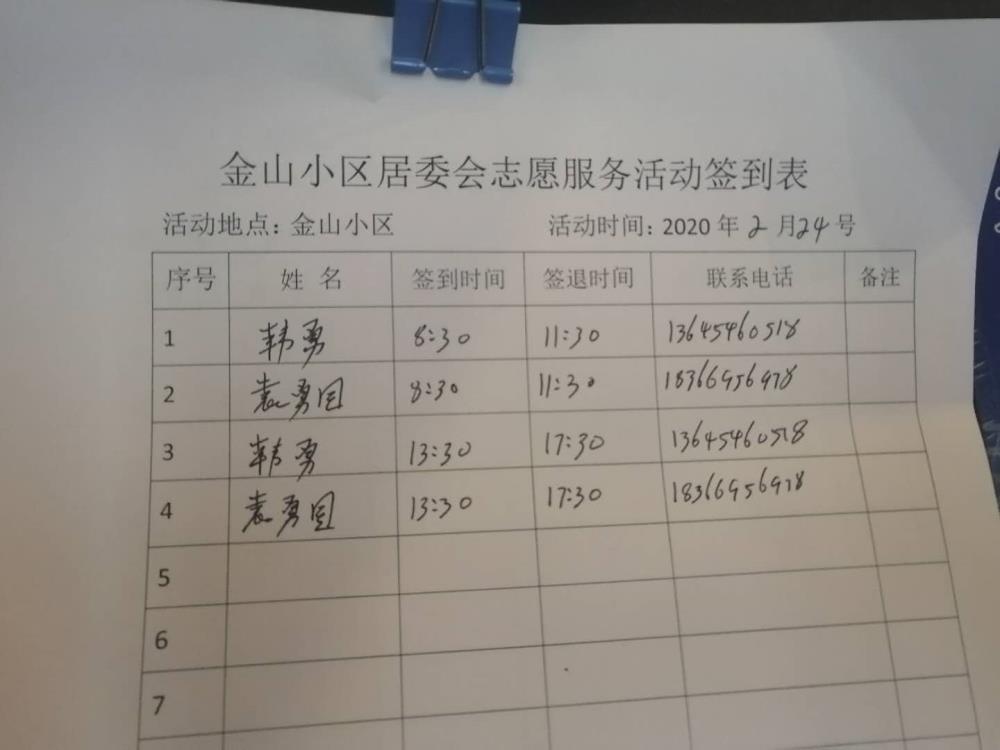 金山小区居委会志愿服务活动签到表
活动地点：金山小区 活动时间：2020年2月24号
序号 姓名 签到时间 签退时间 联系电话 备注
1 韩勇 8:30 11:30 13645460518
2 袁勇国 8:30 11:30 18366956978
3 韩勇 13:30 17:30 13645460518
4 袁勇国 13:30 17:30 18366956978
5
6
7